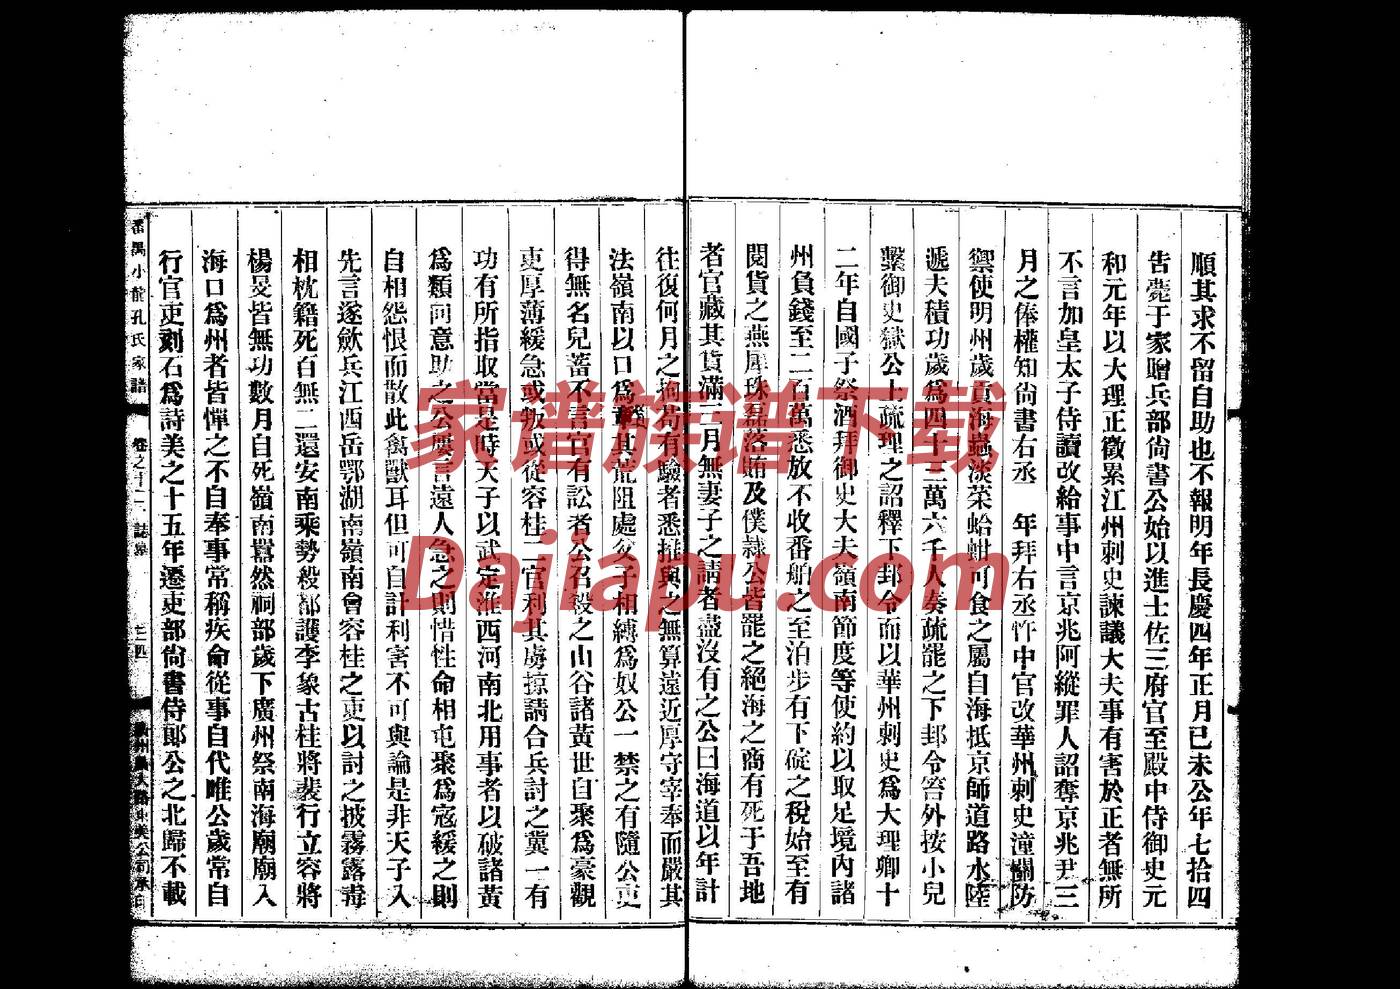 順其求不留自助也不報明年長慶四年正月已未公年七拾四
吿薨于家贈兵部尙書公始以進士佐三府官至殿中侍御史元
和元年以大理正徵累江州刺史諫議大夫事有害於正者無所
不言加皇太子侍讀改給事中言京兆阿縱罪人詔奪京兆尹三
月之俸權知尙書右丞 年拜右丞忤中官改華州刺史潼關防
禦使明州歲貢海蟲淡菜蛤蚶可食之屬自海抵京師道路水陸
遞夫積功歲爲四十三萬六千人奏疏罷之下邽令笞外按小兒
繫御史獄公上疏理之詔釋下邽令而以華州刺史爲大理卿十
二年自國子祭酒拜御史大夫嶺南節度等使約以取足境內諸
州負錢至二百萬悉放不收番舶之至泊步有下碇之稅始至有
閱貨之燕犀珠磊落賄及僕隷公皆罷之絕海之商有死于吾地
者官藏其貨滿三月無妻子之請者盡沒有之公曰海道以年計
往復何月之拘苟有驗者悉推與之無算遠近厚守宰奉而嚴其
法嶺南以口爲其荒阻處父子相縛爲奴公一禁之有隨公吏
得無名兒蓄不言官有訟者公召殺之山谷諸黃世自聚爲豪觀
吏厚薄緩急或叛或從容桂二官利其虜掠請合兵討之冀一有
功有所指取當是時天子以武定淮西河南北用事者以破諸黃
爲類向意助之公屢言遠人急之則惜性命相屯聚爲寇緩之則
自相怨恨而散此禽獸耳但可自計利害不可與論是非天子入
先言遂歛兵江西岳鄂湖南嶺南會容桂之吏以討之披霧露毒
相枕籍死百無二還安南乘勢殺都護李象古桂將裴行立容將
楊旻皆無功數月自死嶺南囂然祠部歲下廣州祭南海廟廟入
海口爲州者皆憚之不自奉事常稱疾命從事自代唯公歲常自
行官吏刻石爲詩美之十五年遷吏部尙書侍郞公之北歸不載
番禺小龍孔氏家譜 卷之十二 誌
家谱族谱下载
Dajiapu.com